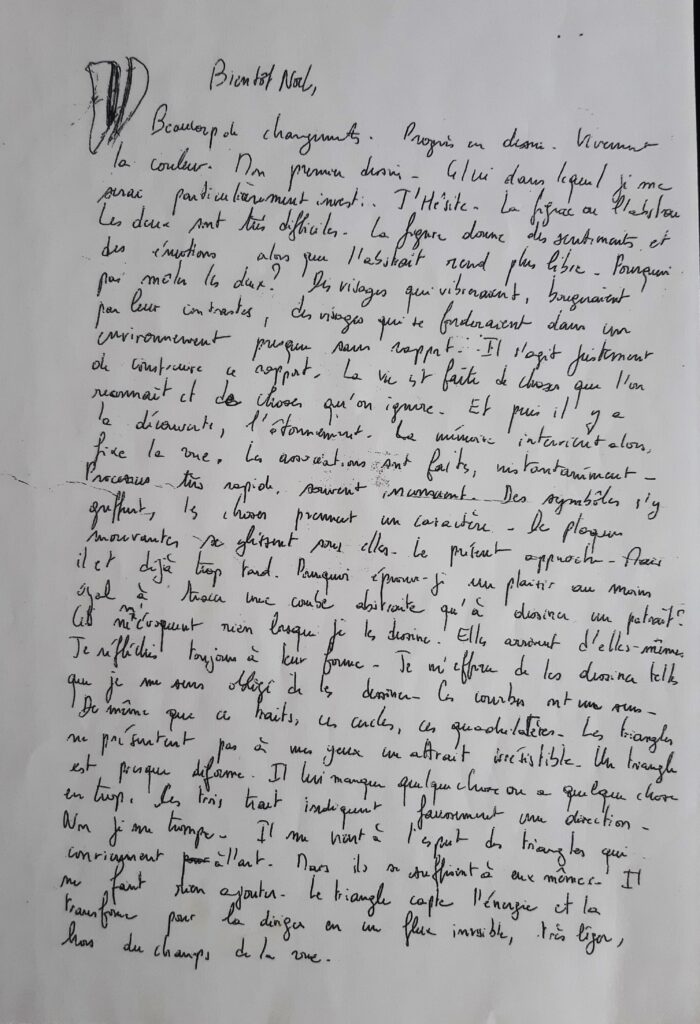 Bientôt Noël,
Beaucoup de changements. Progrès en dessin. Vivement
la couleur. Mon premier dessin - Celui dans lequel je me
serai particulièrement investi. J'Hésite. La figure ou l'abstrait
Les deux sont très difficiles. La figure donne des sentiments et
des émotions alors que l'abstrait rend plus libre - Pourquoi
pas mêler les deux? Des visages qui vibreraient, bougeraient
par leur contrastes, des visages qui se fonderaient dans un
environnement presque sans rapport. Il s'agit justement
de construire ce rapport. La vie est faite de choses que l'on
reconnaît et de choses qu'on ignore. Et puis il y a
la découverte, l'étonnement. La mémoire intervient alors,
fixe la vue. Les associations se font, instantanément -
Processus très rapide, souvent inconscient. Des symbôles s'y
greffent, les choses prennent un caractère - De plaques
mouvantes se glissent sous elles. Le présent approche - Mais
il est déjà trop tard. Pourquoi éprouve-je un plaisir au moins
égal à tracer une courbe abstraite qu'à dessiner un portrait?
n'évoquent rien lorsque je les dessine. Elles arrivent d'elles-mêmes
Je réfléchis toujours à leur forme - Je m'efforce de les dessiner telles
que je me sens obligé de les dessiner - Ces courbes ont un sens -
De même que ces traits, ces cercles, ces quadrilatères. Les triangles
ne présentent pas à mes yeux un attrait irrésistible. Un triangle
est presque difforme. Il lui manque quelque chose ou a quelque chose
en trop. Les trois trait indiquent forcément une direction -
Non je me trompe - Il me vient à l'esprit des triangles qui
conviennent à l'art. Mais ils se suffisent à eux mêmes - Il
ne faut rien ajouter - Le triangle capte l'énergie et la
transforme pour la diriger en un flux invisible, très léger,
hors du champs de la vue.